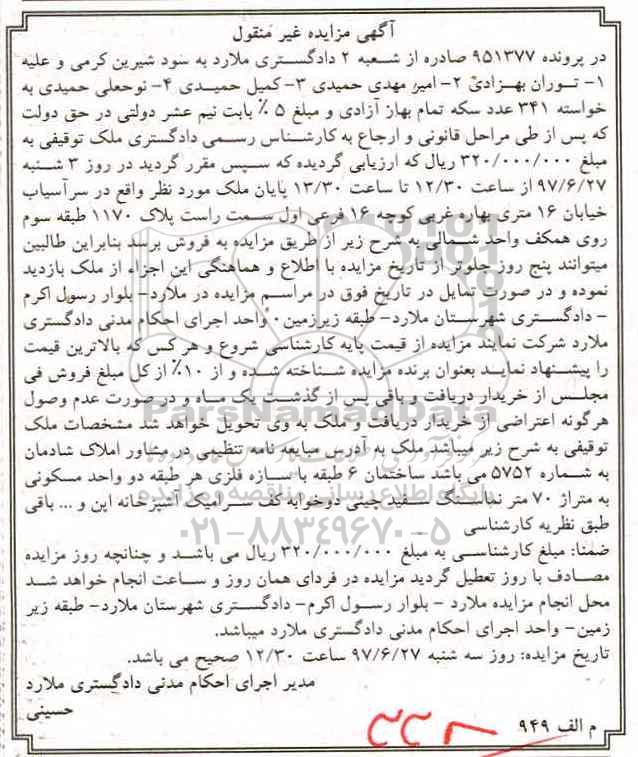 آگهی مزایده غیر منقول
در پرونده ۹۵۱۳۷۷ صادره از شعبه ۲ دادگستری ملارد به سود شیرین کرمی و علیه
۱- توران بهزادی ۲- امیر مهدی حمیدی ۳-کمیل حمیدی ۴- نوحعلی حمیدی به
خواسته ۳۴۱ عدد سکه تمام بهاز آزادی و مبلغ ۵ ٪ بابت نیم عشر دولتی در حق دولت
که پس از طی مراحل قانونی و ارجاع به کارشناس رسمی دادگستری ملک توقیفی به
مبلغ ۳۲۰/۰۰۰/۰۰۰ ریال که ارزیابی گردیده که سپس مقرر گردید در روز ۳ شنبه
۹۷/۶/۲۷ از ساعت ۱۲/۳۰ تا ساعت ۱۳/۳۰ پایان ملک مورد نظر واقع در سرآسیاب
خیابان ۱۶ متری بهاره غربی کوچه ۱۶ فرعی اول سمت راست پلاک ۱۱۷۰ طبقه سوم
روی همکف واحد شمالی به شرح زیر از طریق مزایده به فروش برسد بنابراین طالبین
میتوانند پنج روز جلوتر از تاریخ مزایده با اطلاع و هماهنگی این اجراء از ملک بازدید
نموده و در صورت تمایل در تاریخ فوق در مراسم مزایده در ملارد- بلوار رسول اکرم
- دادگستری شهرستان ملارد- طبقه زیرزمین- واحد اجرای احکام مدنی دادگستری
ملارد شرکت نمایند مزایده از قیمت پایه کارشناسی شروع و هر کس که بالاترین قیمت
را پیشنهاد نماید بعنوان برنده مزایده شناخته شده و از ۱۰٪ از کل مبلغ فروش فی
مجلس از خریدار دریافت و باقی پس از گذشت یک ماه و در صورت عدم وصول
هرگونه اعتراضی از خریدار دریافت و ملک به وی تحویل خواهد شد مشخصات ملک
توقیفی به شرح زیر میباشد ملک به آدرس مبایعه نامه تنظیمی در مشاور املاک شادمان
به شماره ۵۷۵۲ می باشد ساختمان ۶ طبقه با سازه فلزی هر طبقه دو واحد مسکونی
به متراژ ۷۰ متر نماسنگ سفید چینی دوخوابه کف سرامیک آشپزخانه اپن و ... باقی
طبق نظریه کارشناسی
ضمنا: مبلغ کارشناسی به مبلغ ۳۲۰/۰۰۰/۰۰۰ ریال می باشد و چنانچه روز مزایده
مصادف با روز تعطیل گردید مزایده در فردای همان روز و ساعت انجام خواهد شد
محل انجام مزایده ملارد - بلوار رسول اکرم- دادگستری شهرستان ملارد- طبقه زیر
زمین- واحد اجرای احکام مدنی دادگستری ملارد میباشد.
تاریخ مزایده: روز سه شنبه ۹۷/۶/۲۷ ساعت ۱۲/۳۰ صحیح می باشد.
مدیر اجرای احکام مدنی دادگستری ملارد
حسینی
م الف ۹۴۹
ParsNamadData
پایگاه اطلاع رسانی مناقصه و مزایده
۰۲۱-۸۸۳۴۹۶۷۰-۵